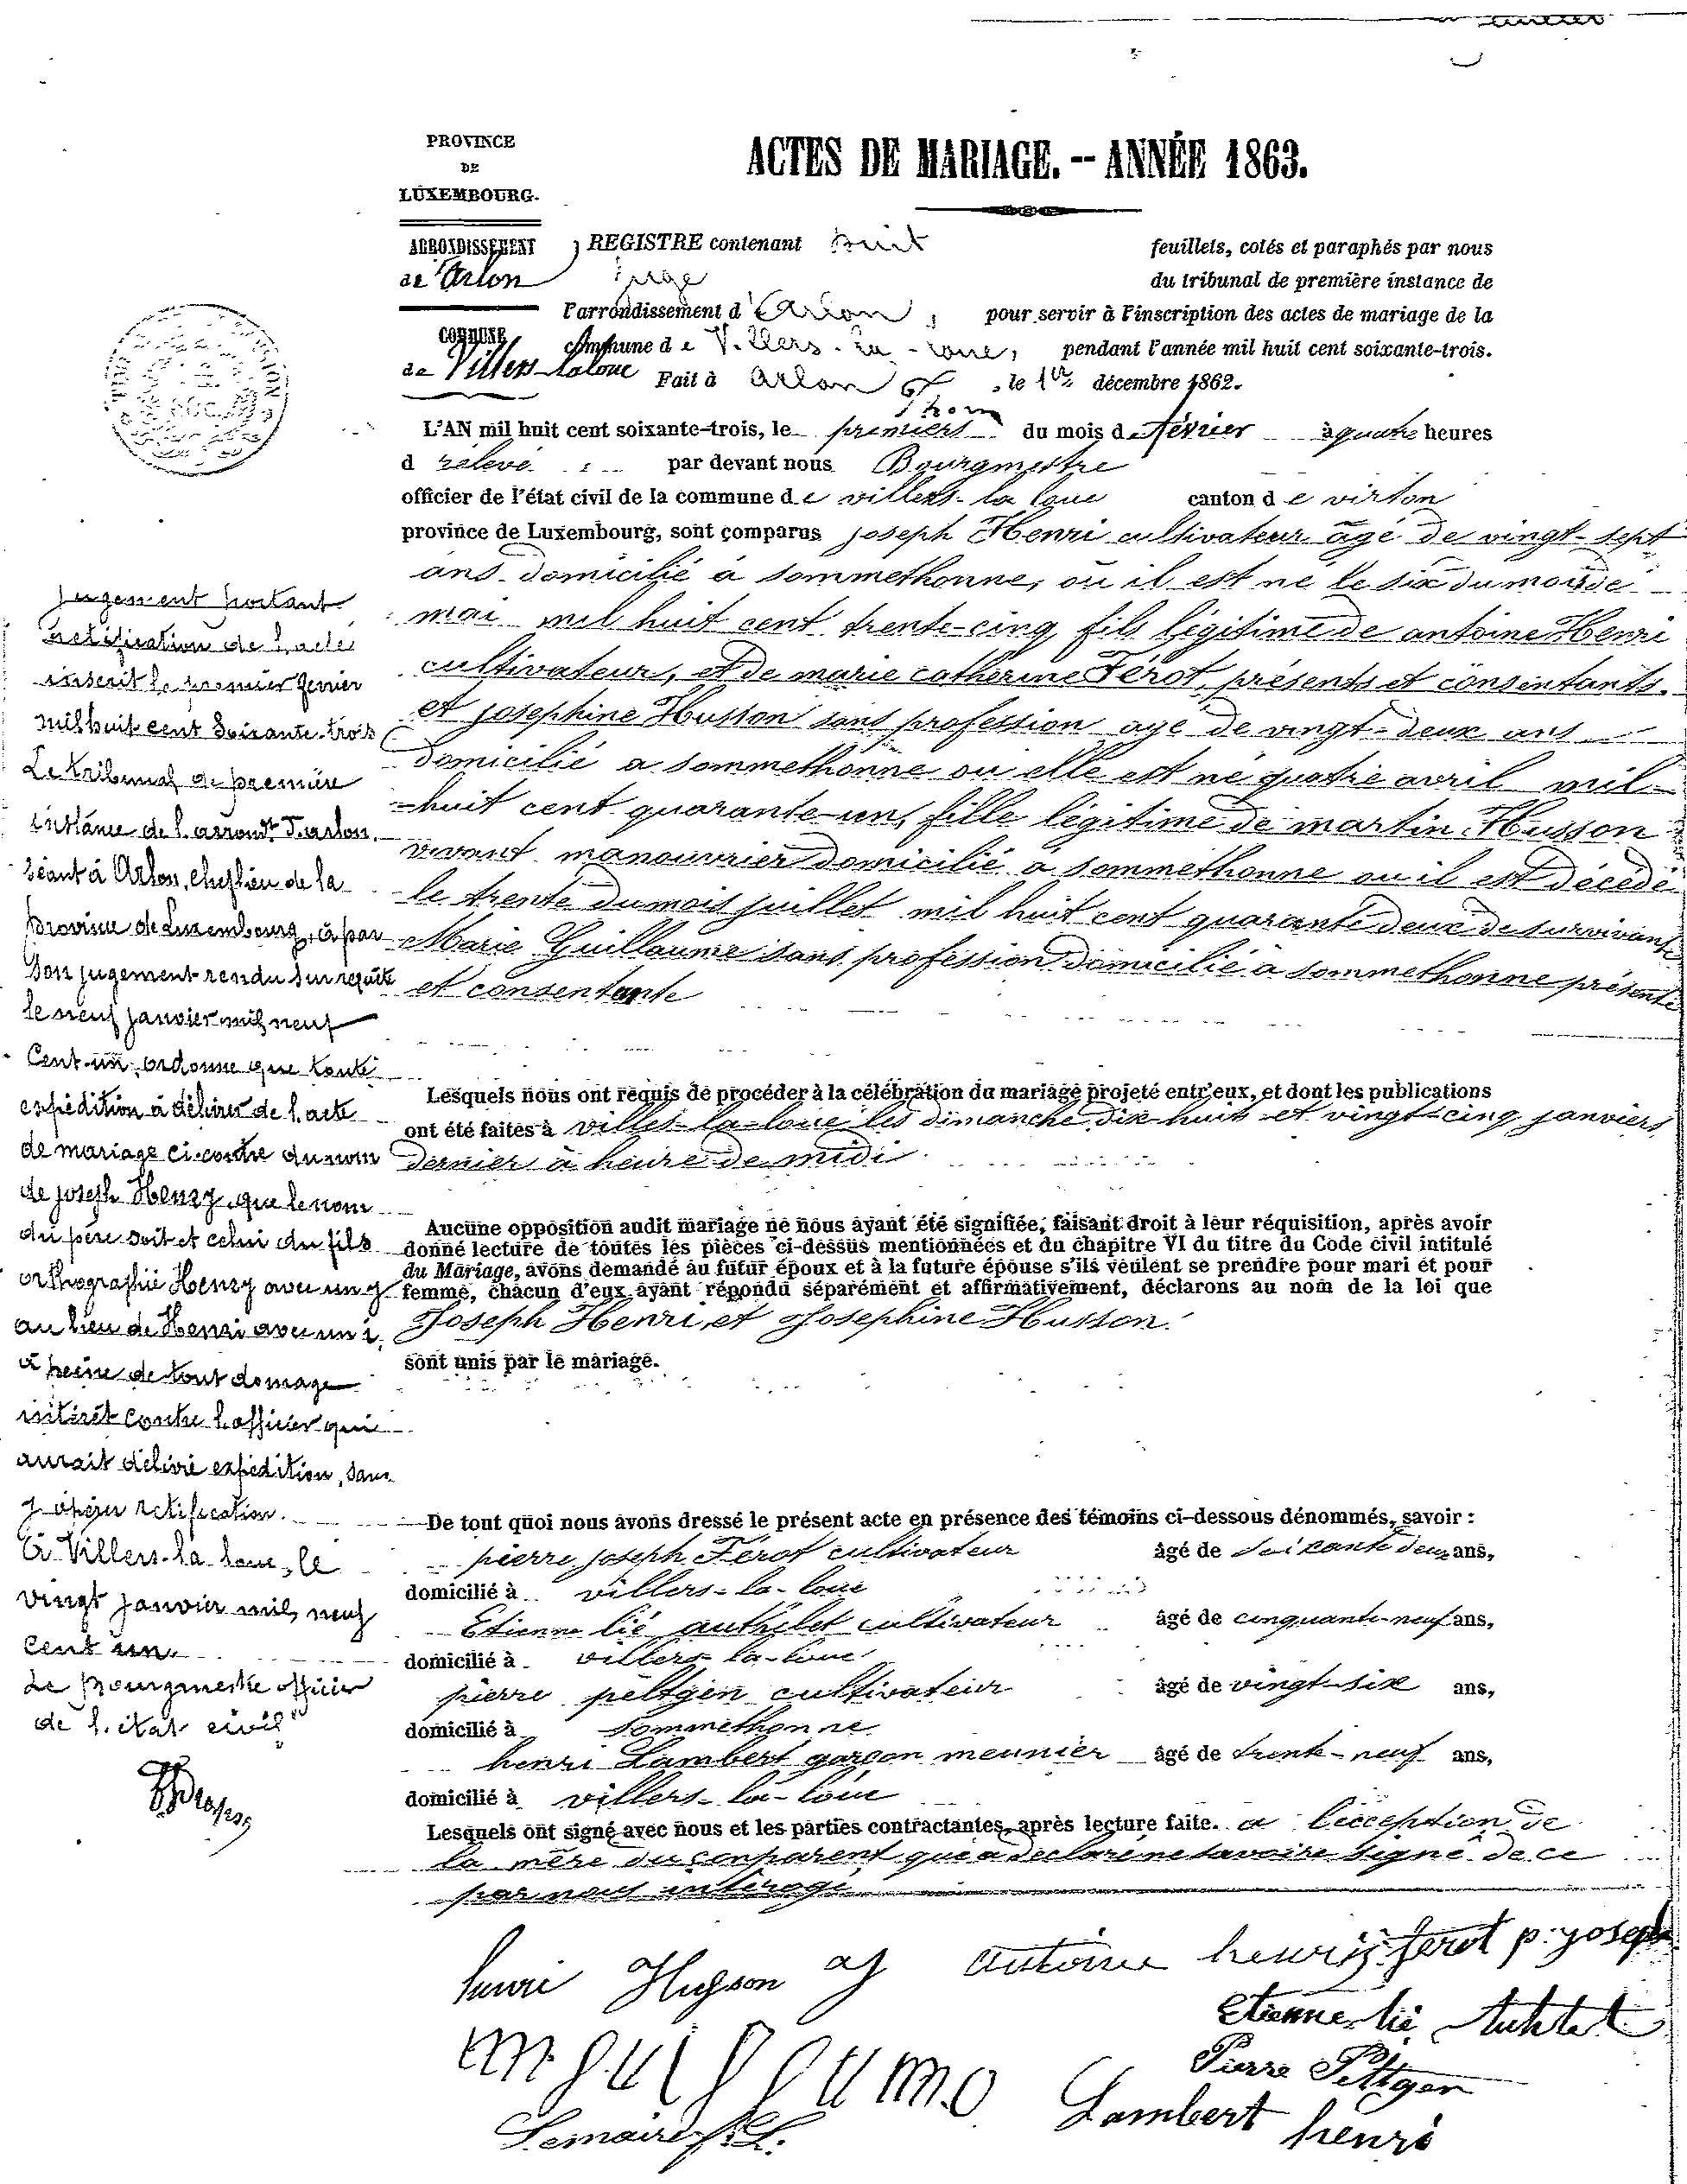 PROVINCE
DE
LUXEMBOURG.
ACTES DE MARIAGE. -- ANNÉE 1863.
ARRONDISSEMENT
de Arlon
COMMUNE
de Villers-laloue
REGISTRE contenant huit feuillets, cotés et paraphés par nous
juge du tribunal de première instance de
l'arrondissement d'Arlon, pour servir à l'inscription des actes de mariage de la
commune de Villers-la-loue, pendant l'année mil huit cent soixante-trois.
Fait à Arlon, le 1er décembre 1862.
L'AN mil huit cent soixante-trois, le premiers du mois de février à quatre heures
d relevé par devant nous Bourgmestre
officier de l'état civil de la commune de villers-la loue canton de virton
province de Luxembourg, sont comparus joseph Henri cultivateur âgé de vingt-sept
ans domicilié à sommethonne, où il est né le six du mois de
mai mil huit cent trente-cinq fils légitime de antoine Henri
cultivateur, et de marie catherine Férot, présents et consentants.
et josephine Husson sans profession agé de vingt-deux ans
domicilié a sommethonne ou elle est né quatre avril mil
huit cent quarante-un, fille légitime de martin Husson
vivant manouvrier domicilié à sommethonne ou il est décédé
le trente du mois juillet mil huit cent quarante deux de survivante
Marie Guillaume sans profession domicilié à sommethonne présente
et consentante
Lesquels nous ont requis de procéder à la célébration du mariage projeté entr'eux, et dont les publications
ont été faites à villes-la-loue les dimanche dix-huit et vingt-cinq janviers
dernier à heure de midi
Aucune opposition audit mariage ne nous ayant été signifiée, faisant droit à leur réquisition, après avoir
donné lecture de toutes les pièces ci-dessus mentionnées et du chapitre VI du titre du Code civil intitulé
du Mariage, avons demandé au futur époux et à la future épouse s'ils veulent se prendre pour mari et pour
femme, chacun d'eux ayant répondu séparément et affirmativement, déclarons au nom de la loi que
Joseph Henri et Josephine Husson.
sont unis par le mariage.
De tout quoi nous avons dressé le présent acte en présence des témoins ci-dessous dénommés, savoir :
pierre joseph Férot cultivateur âgé de soixante deux ans,
domicilié à villers-la-loue
Etienne lié authelet cultivateur âgé de cinquante-neuf ans,
domicilié à villers la-loue
pierre peltgen cultivateur âgé de vingt-six ans,
domicilié à sommethonne
henri Lambert garçon meunier âgé de trente-neuf ans,
domicilié à villers-la-loue
Lesquels ont signé avec nous et les parties contractantes, après lecture faite. a l'exception de
la mère du conparent que a déclaré ne savoire signé de ce
par nous intérogé
jugement portant
rectification de l'acte
inscrit le premier février
mil huit cent soixante-trois
Le tribunal de première
instance de l'arrondt d'arlon
séant à Arlon, chef lieu de la
province de Luxembourg, à par
son jugement rendu sur requête
le neuf janvier mil neuf
cent-un, ordonne que toute
expédition à délivrer de l'acte
de mariage ci-contre du nom
de joseph Henry, que le nom
du père soit et celui du fils
orthographié Henry avec un y
au lieu de Henri avec un i,
à peine de tout domage
intérêt contre l'officier qui
aurait délivré expédition, sans
y opérer retification.
à Villers-la loue, le
vingt janvier mil neuf
cent un.
Le bourgmestre officier
de l'état civil
henri Husson j antoine henri ferot p. joseph
Etienne lié Authelet
m guillaume Pierre Peltgen
Lambert henri